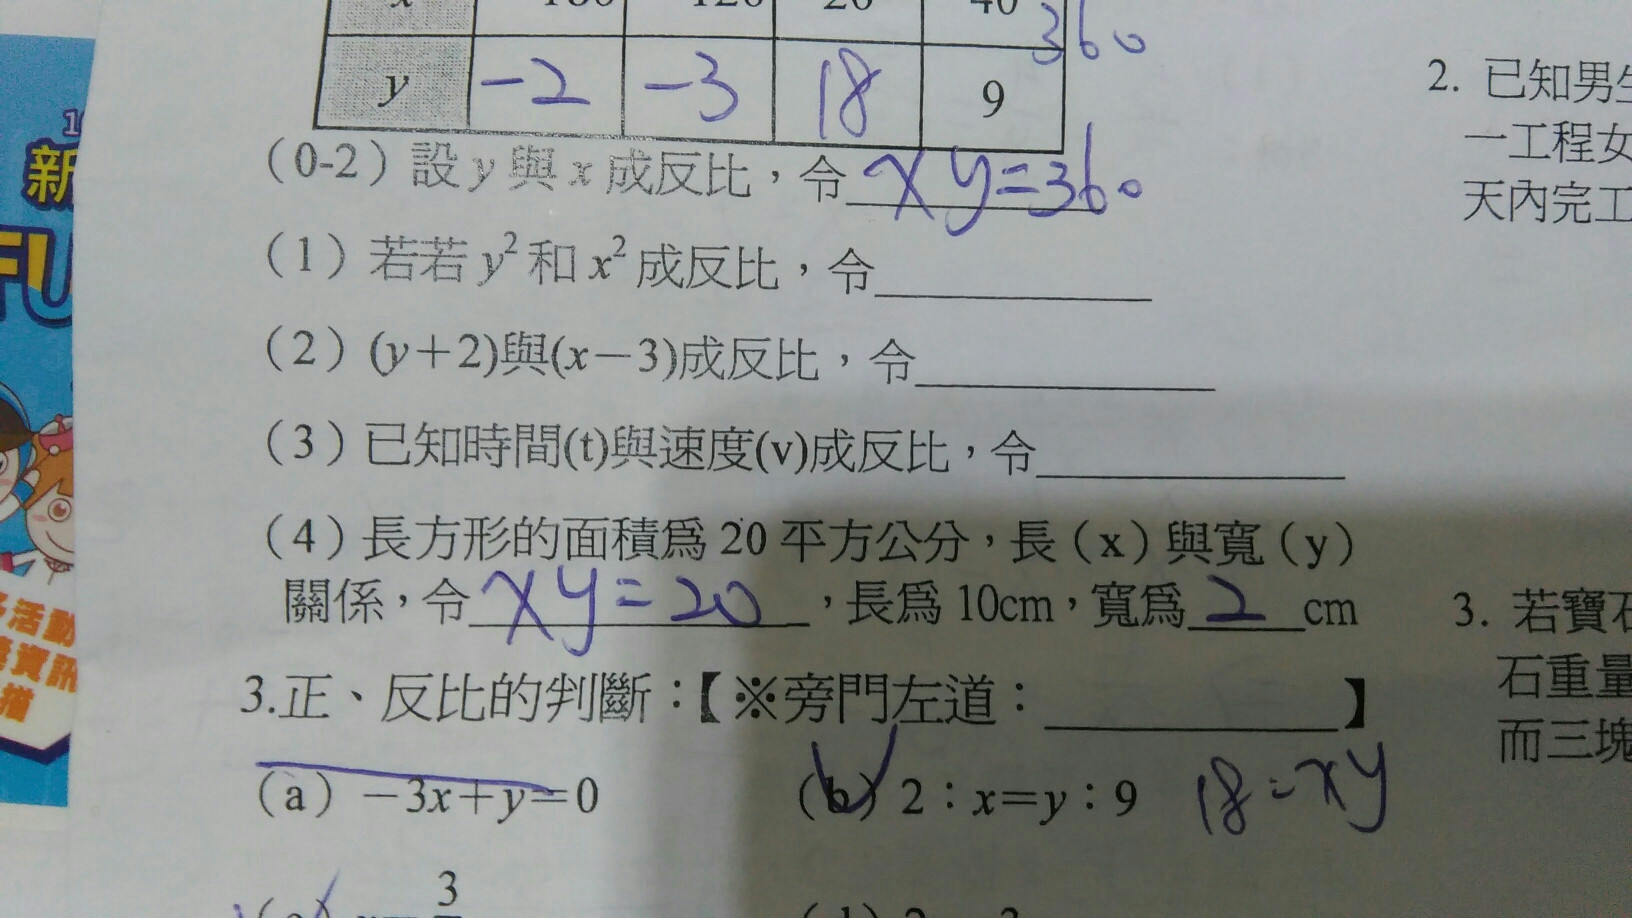 y -2 -3 18 9
360
(0-2) 設 y 與 x 成反比，令 xy=360
(1) 若若 y² 和 x² 成反比，令__________
(2) (y+2)與(x-3)成反比，令__________
(3) 已知時間(t)與速度(v)成反比，令__________
(4) 長方形的面積為 20 平方公分，長(x)與寬(y)
關係，令 xy=20，長為 10cm，寬為 2 cm
3.正、反比的判斷：【※旁門左道：__________】
(a) -3x+y=0 (b) 2：x=y：9 18=xy
2. 已知男
一工程女
天內完工
3. 若寶石
石重量
而三塊
新
FU
活動
資訊